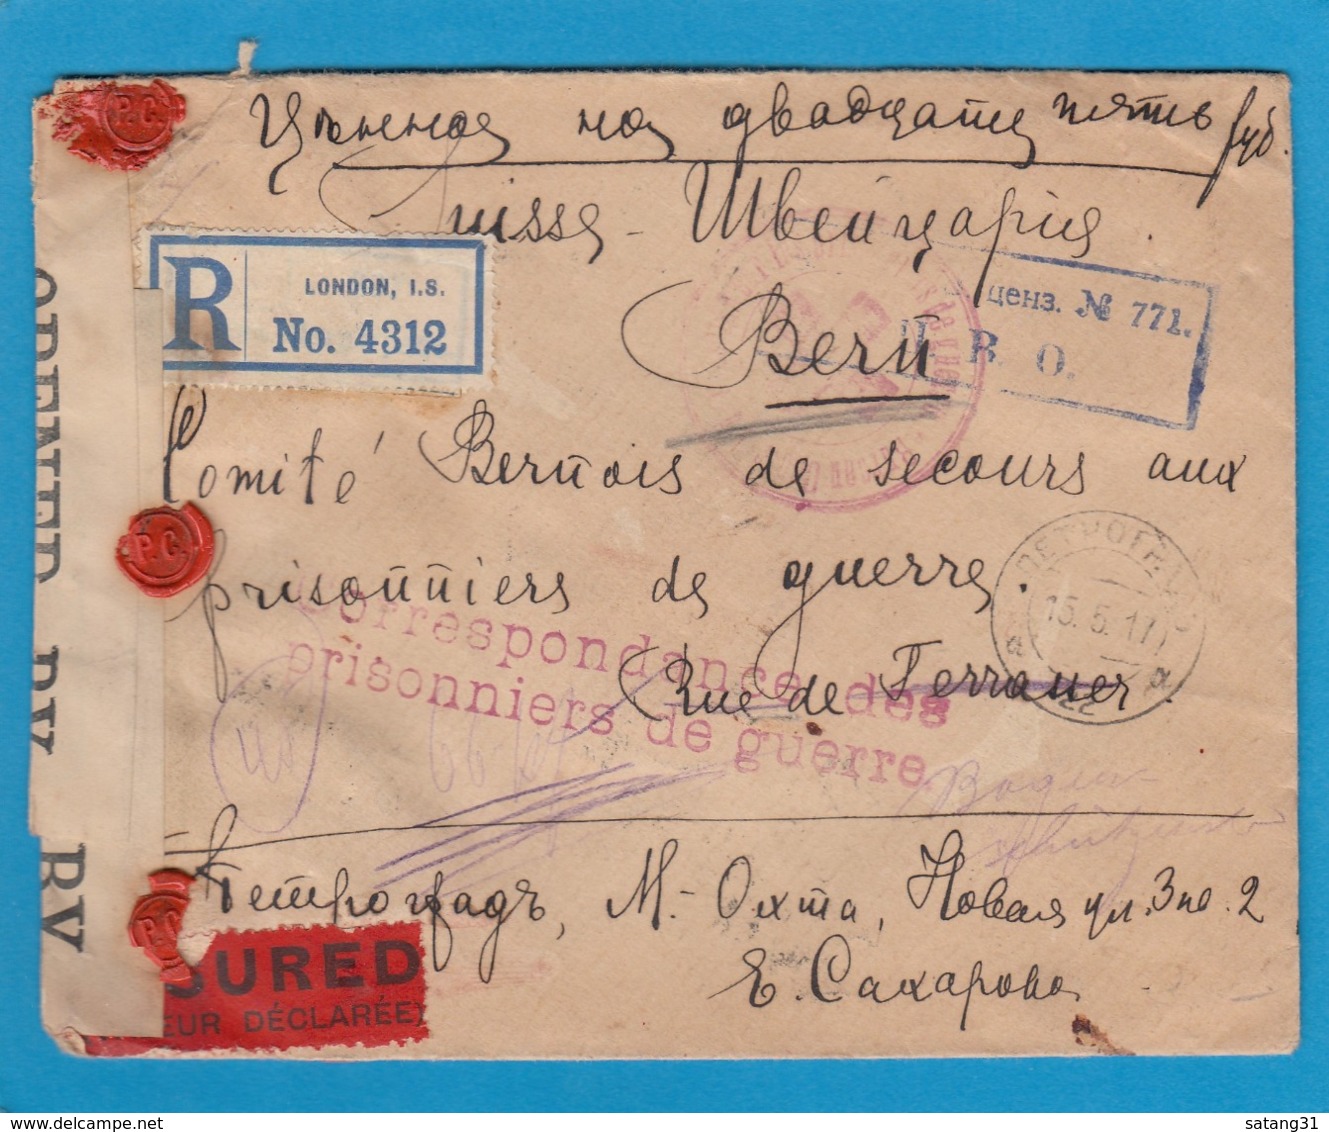 Цѣнная на двадцать пять руб.
Suisse - Швейцарія.
R LONDON, I.S.
No. 4312
ценз. № 771.
В. О.
Bern
Comité Bernois de secours aux
prisonniers de guerre.
Rue de
Correspondance des
prisonniers de guerre
15.5.17
Петроградъ, М.- Охта, Новая ул. 3
Е. Сахарова
OPENED BY
BY
P.C.
P.C.
P.C.
SURED
EUR DÉCLARÉE)
delcampe.net
satang31